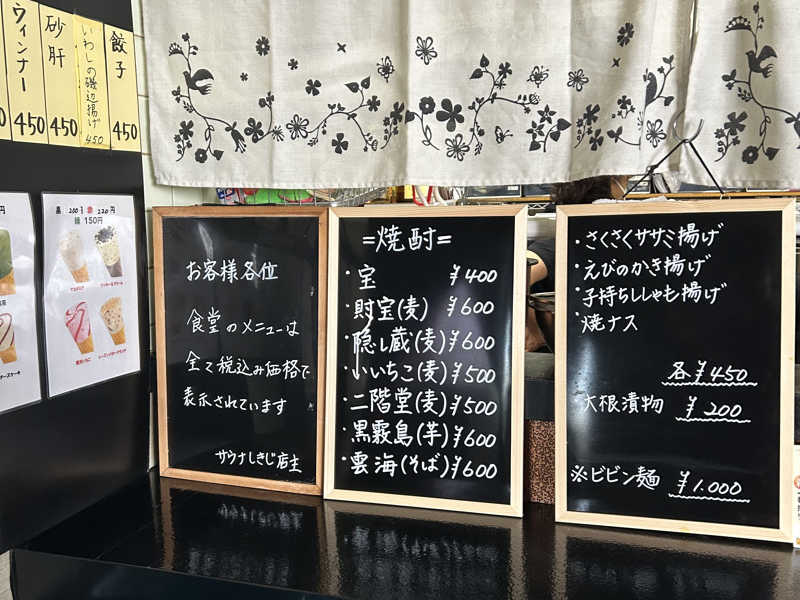 ウィンナー
450
砂肝
450
いわしの磯辺揚げ
450
餃子
450
黒 200 赤 220円
緑 150円
お客様各位
食堂のメニューは
全て税込み価格で
表示されています
サウナしきじ店主
=焼酎=
・宝 ¥400
・財宝(麦) ¥600
・隠し蔵(麦) ¥600
・いいちこ(麦) ¥500
・二階堂(麦) ¥500
・黒霧島(芋) ¥600
・雲海(そば) ¥600
・さくさくササミ揚げ
・えびのかき揚げ
・子持ちししゃも揚げ
・焼ナス
各¥450
大根漬物 ¥200
※ビビン麺 ¥1.000